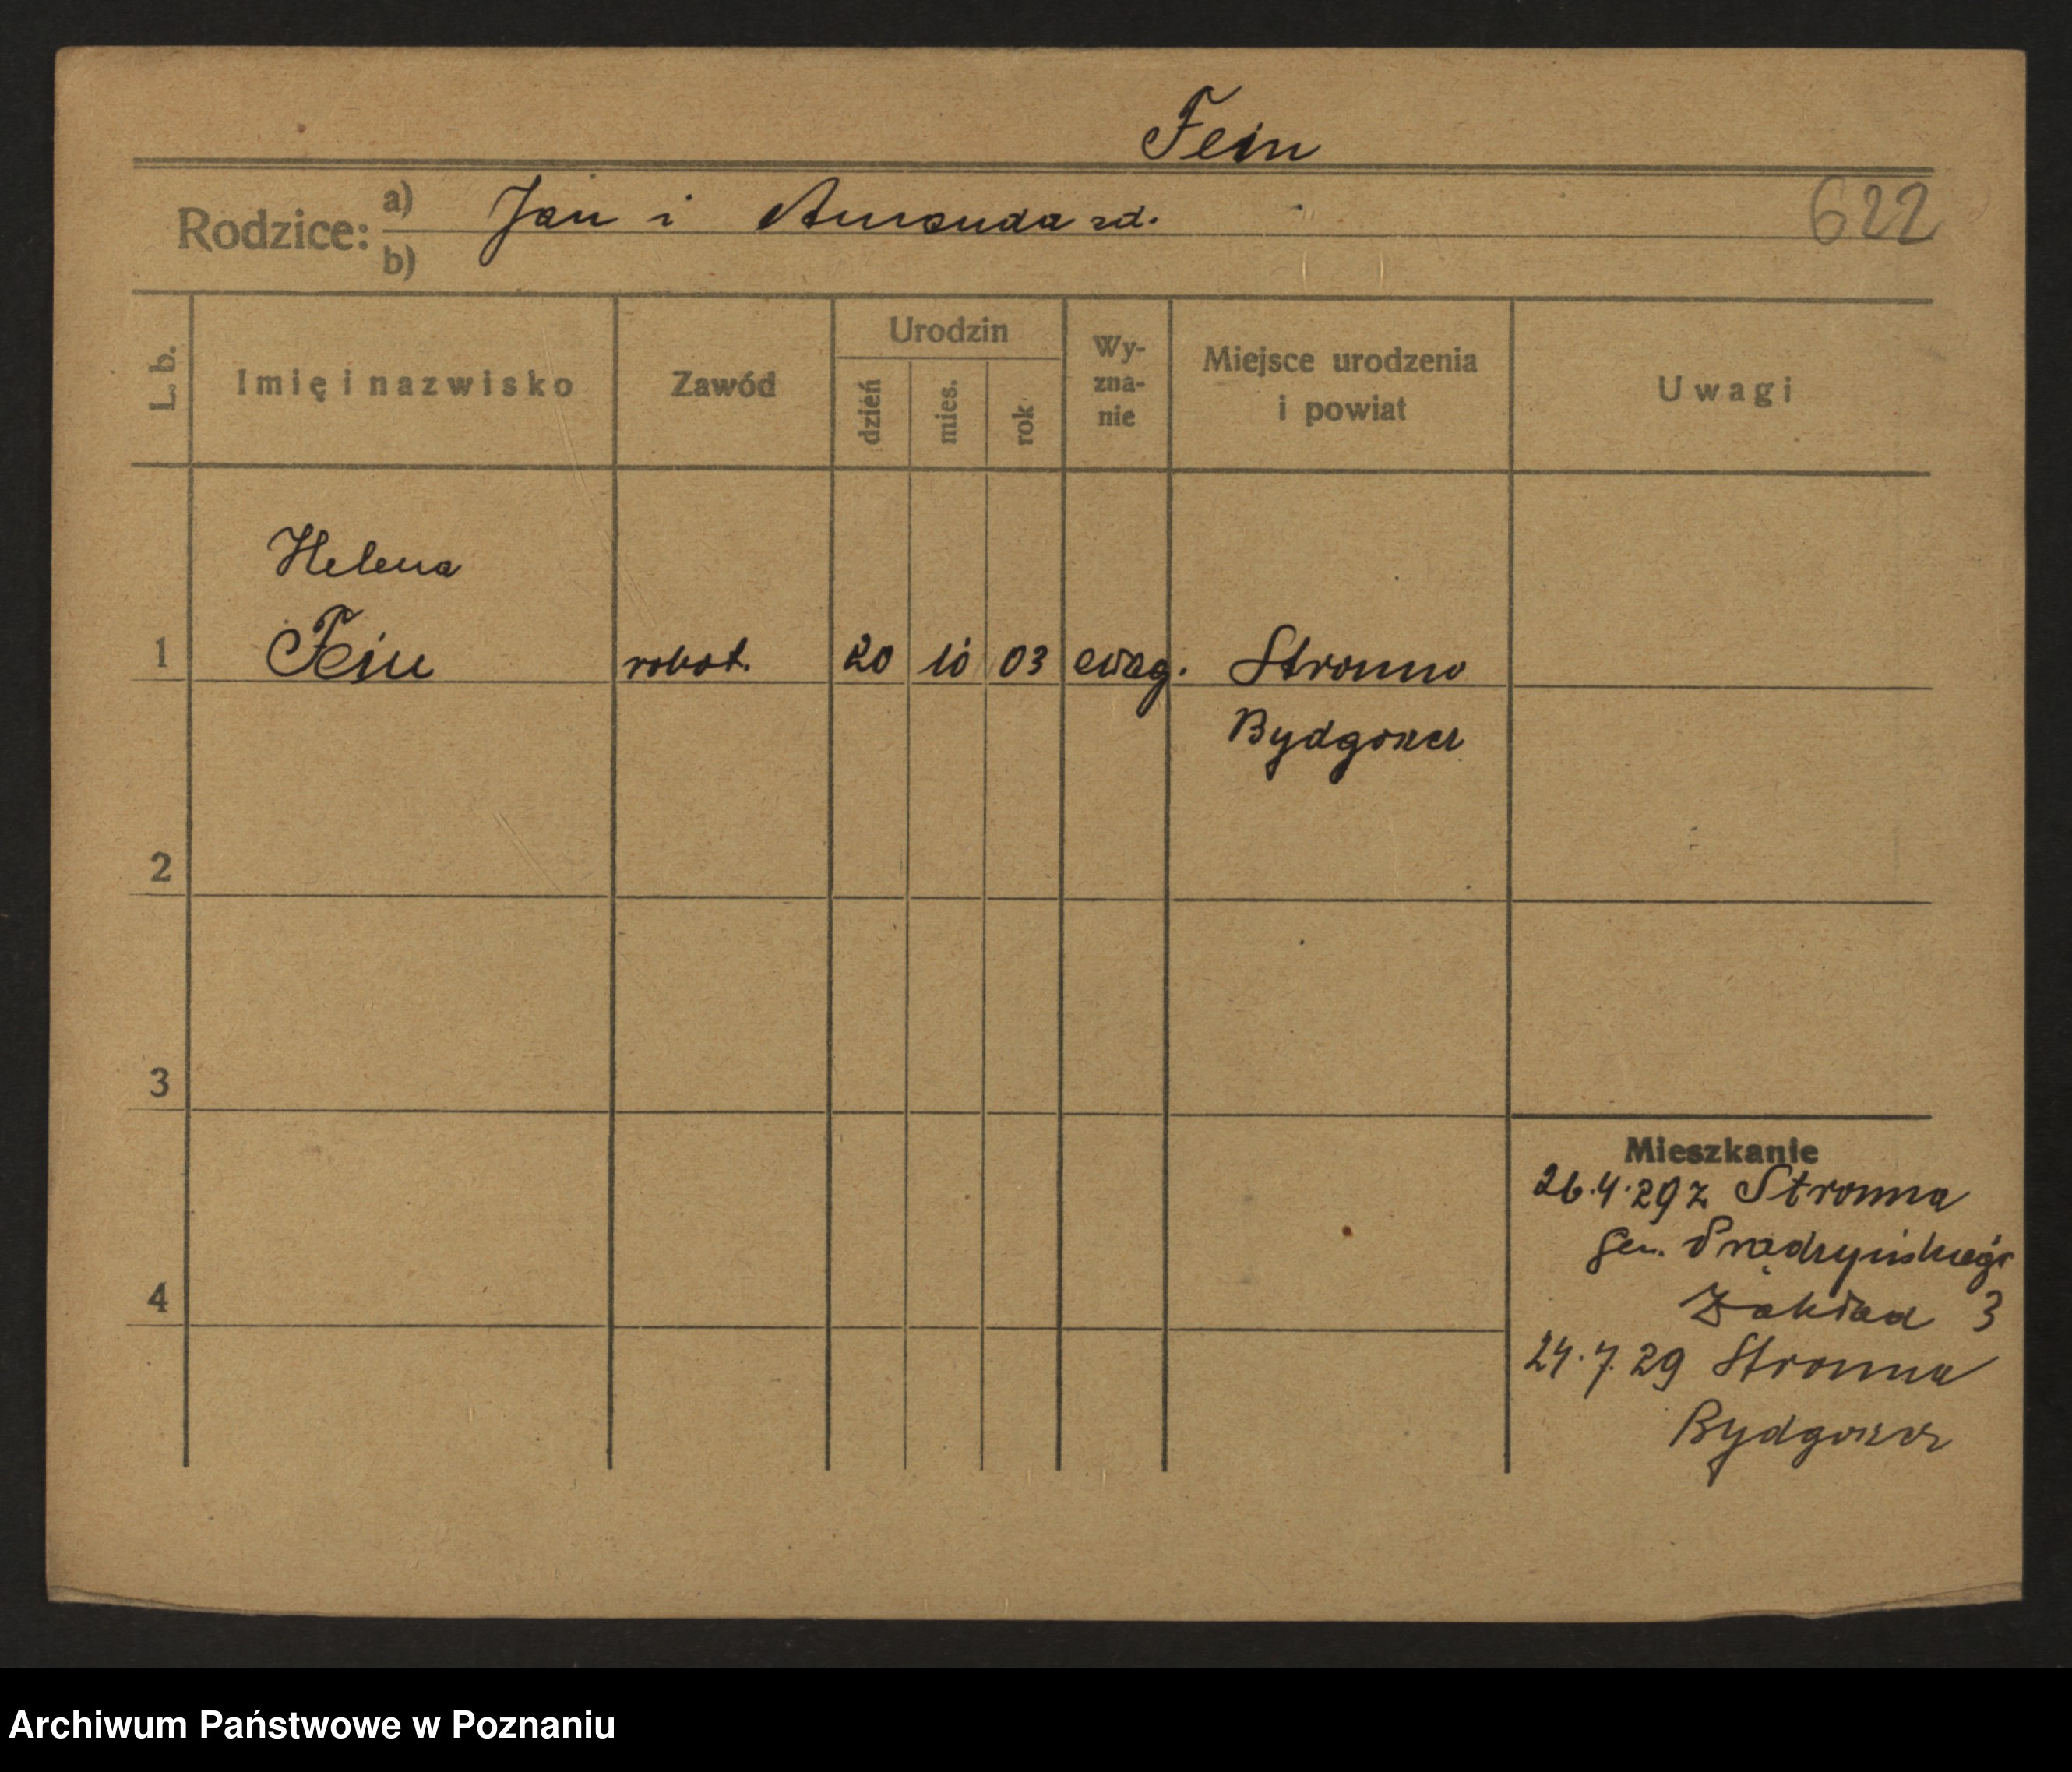 Fein
Rodzice: a) Jan i Amanda zd.
b)
622
L. b.
Imię i nazwisko
Zawód
Urodzin
dzień
mies.
rok
Wy-
zna-
nie
Miejsce urodzenia
i powiat
Uwagi
Helena
1 Fein robot. 20 10 03 ewag. Stronno
Bydgoszcz
2
3
4
Mieszkanie
26.4.29 z Stronna
gen. Prądzyńskiego
Zakład 3
24.7.29 Stronna
Bydgoszcz
Archiwum Państwowe w Poznaniu